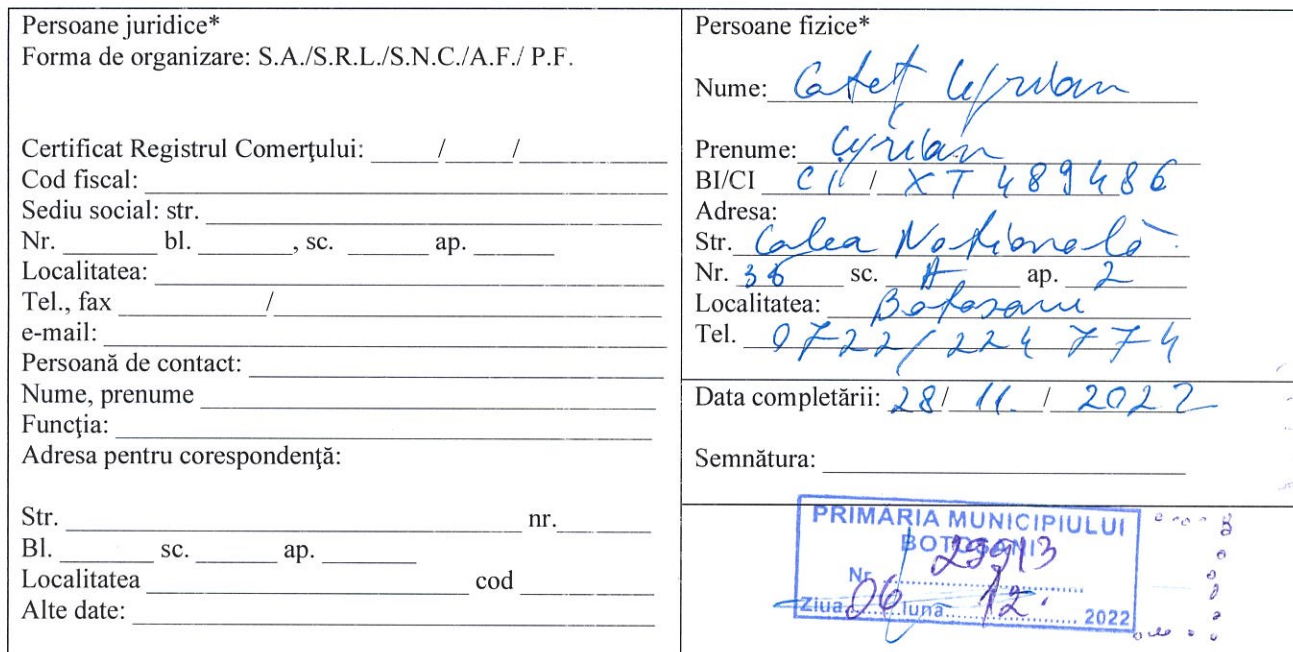 Persoane juridice*
Forma de organizare: S.A./S.R.L./S.N.C./A.F./ P.F.
Certificat Registrul Comerţului: / /
Cod fiscal:
Sediu social: str.
Nr. bl. , sc. ap.
Localitatea:
Tel., fax /
e-mail:
Persoană de contact:
Nume, prenume
Funcţia:
Adresa pentru corespondenţă:
Str. nr.
Bl. sc. ap.
Localitatea cod
Alte date:
Persoane fizice*
Nume:
Prenume: Cyprian
BI/CI CI / XT 489486
Adresa:
Str. Calea Națională
Nr. 36 sc. A ap. 2
Localitatea: Botosani
Tel. 0722/224 774
Data completării: 28/ 11. / 2022
Semnătura:
PRIMĂRIA MUNICIPIULUI
BOTOŞANI
Nr. 29913
Ziua 06 luna 12. 2022